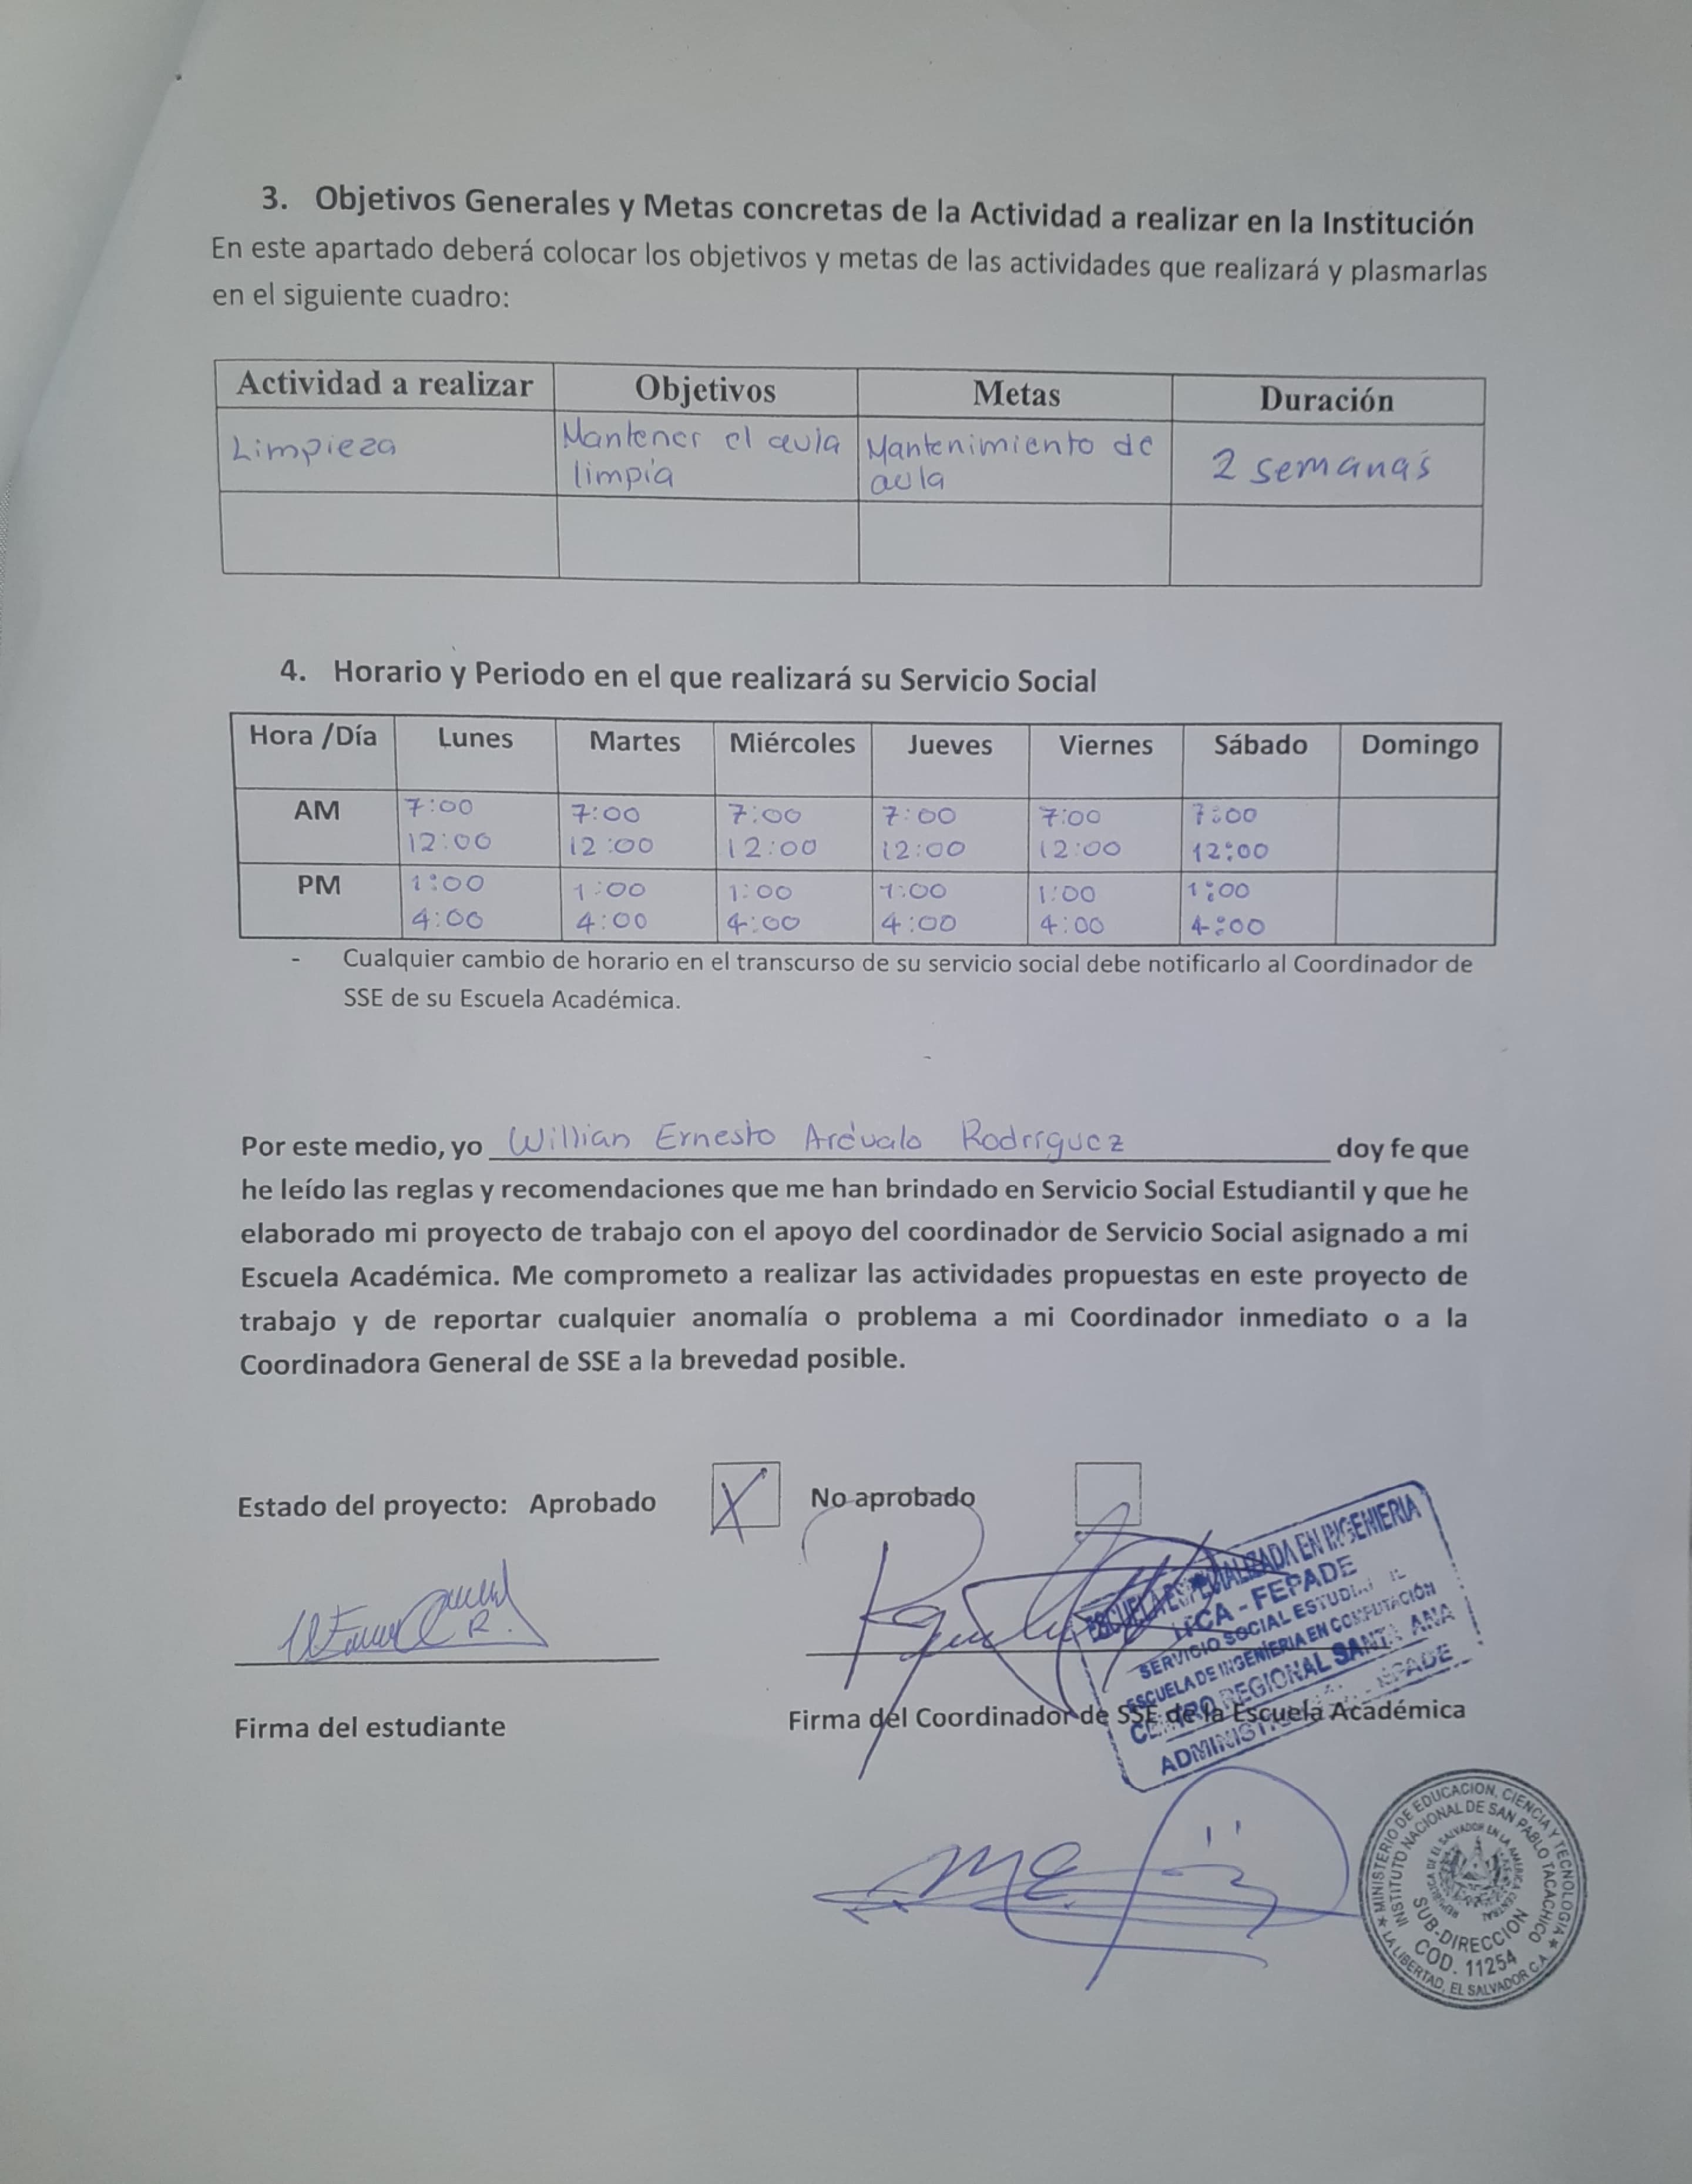 3. Objetivos Generales y Metas concretas de la Actividad a realizar en la Institución
En este apartado deberá colocar los objetivos y metas de las actividades que realizará y plasmarlas
en el siguiente cuadro:
Actividad a realizar Objetivos Metas Duración
Limpieza Mantener el aula limpia Mantenimiento de aula 2 semanas
4. Horario y Periodo en el que realizará su Servicio Social
Hora /Día Lunes Martes Miércoles Jueves Viernes Sábado Domingo
AM 7:00 7:00 7:00 7:00 7:00 7:00
12:00 12:00 12:00 12:00 12:00 12:00
PM 1:00 1:00 1:00 1:00 1:00 1:00
4:00 4:00 4:00 4:00 4:00 4:00
- Cualquier cambio de horario en el transcurso de su servicio social debe notificarlo al Coordinador de
SSE de su Escuela Académica.
Por este medio, yo Willian Ernesto Arévalo Rodríguez doy fe que
he leído las reglas y recomendaciones que me han brindado en Servicio Social Estudiantil y que he
elaborado mi proyecto de trabajo con el apoyo del coordinador de Servicio Social asignado a mi
Escuela Académica. Me comprometo a realizar las actividades propuestas en este proyecto de
trabajo y de reportar cualquier anomalía o problema a mi Coordinador inmediato o a la
Coordinadora General de SSE a la brevedad posible.
Estado del proyecto: Aprobado X No aprobado
ESCUELA ESPECIALIZADA EN INGENIERIA
ITCA - FEPADE
SERVICIO SOCIAL
ESCUELA DE INGENIERIA EN COMPUTACIÓN
CENTRO REGIONAL SANTA ANA
FEPADE
Firma del estudiante
Firma del Coordinador de SSE de la Escuela Académica
MINISTERIO DE EDUCACION, CIENCIA Y TECNOLOGIA
INSTITUTO NACIONAL DE SAN PABLO TACACHICO
REPUBLICA DE EL SALVADOR EN LA AMERICA CENTRAL
SUB-DIRECCION
COD. 11254
LA LIBERTAD, EL SALVADOR C.A.